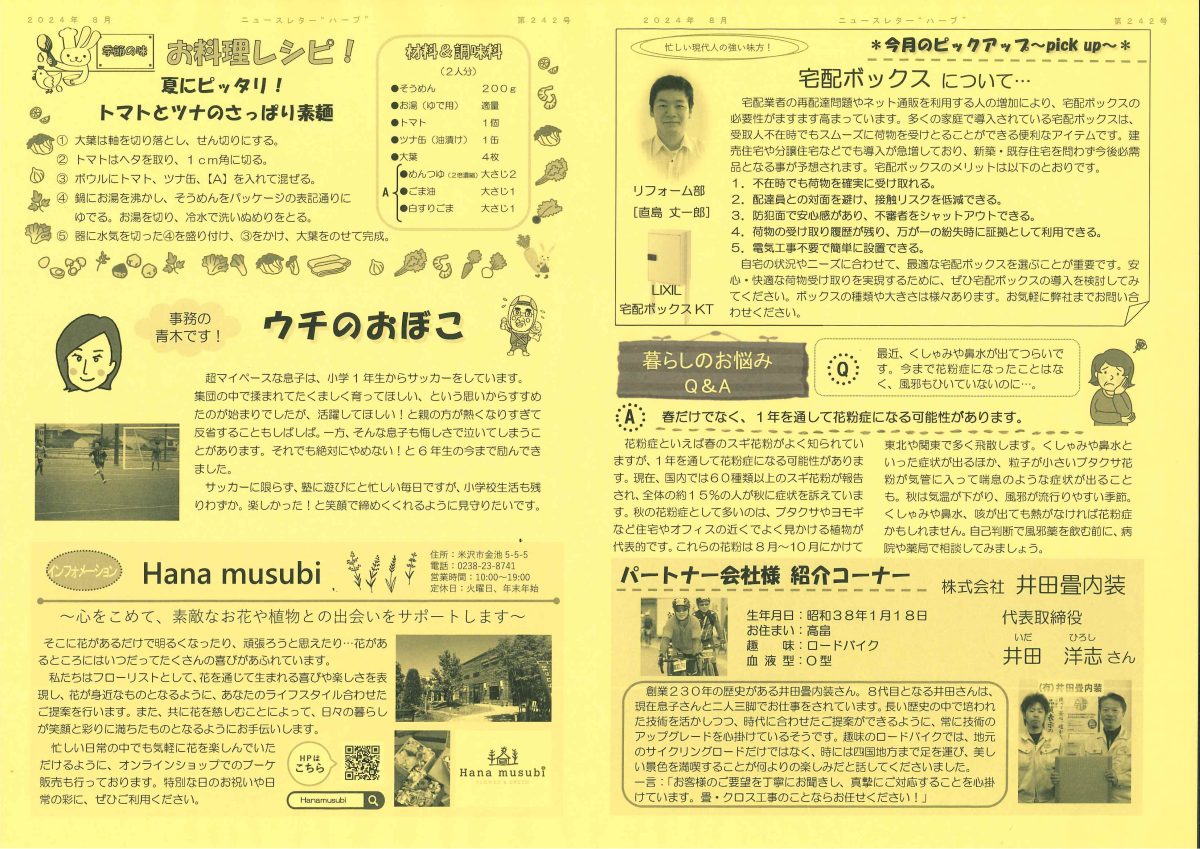 2024年 8月
ニュースレター“ハーブ”
第242号
季節の味
お料理レシピ！
夏にピッタリ！
トマトとツナのさっぱり素麺
① 大葉は軸を切り落とし、せん切りにする。
② トマトはヘタを取り、1cm角に切る。
③ ボウルにトマト、ツナ缶、【A】を入れて混ぜる。
④ 鍋にお湯を沸かし、そうめんをパッケージの表記通りに
ゆでる。お湯を切り、冷水で洗いぬめりをとる。
⑤ 器に水気を切った④を盛り付け、③をかけ、大葉をのせて完成。
材料＆調味料
（2人分）
●そうめん 200g
●お湯（ゆで用） 適量
●トマト 1個
●ツナ缶（油漬け） 1缶
●大葉 4枚
A
●めんつゆ（2倍濃縮）大さじ2
●ごま油 大さじ1
●白すりごま 大さじ1
事務の
青木です！
ウチのおぼこ
超マイペースな息子は、小学1年生からサッカーをしています。
集団の中で揉まれてたくましく育ってほしい、という思いからすすめ
たのが始まりでしたが、活躍してほしい！と親の方が熱くなりすぎて
反省することもしばしば。一方、そんな息子も悔しさで泣いてしまうこ
とがあります。それでも絶対にやめない！と6年生の今まで励んでき
ました。
サッカーに限らず、塾に遊びにと忙しい毎日ですが、小学校生活も残
りわずか。楽しかった！と笑顔で締めくくれるように見守りたいです。
インフォメーション
Hana musubi
住所：米沢市金池 5-5-5
電話：0238-23-8741
営業時間：10:00～19:00
定休日：火曜日、年末年始
～心をこめて、素敵なお花や植物との出会いをサポートします～
そこに花があるだけで明るくなったり、頑張ろうと思えたり…花があ
るところにはいつだってたくさんの喜びがあふれています。
私たちはフローリストとして、花を通じて生まれる喜びや楽しさを表
現し、花が身近なものとなるように、あなたのライフスタイル合わせた
ご提案を行います。また、共に花を慈しむことによって、日々の暮らし
が笑顔と彩りに満ちたものとなるようにお手伝いします。
忙しい日常の中でも気軽に花を楽しんでいた
だけるように、オンラインショップでのブーケ
販売も行っております。特別な日のお祝いや日
常の彩に、ぜひご利用ください。
HPは
こちら
Hanamusubi
Hana musubi
2024年 8月
ニュースレター“ハーブ”
第242号
忙しい現代人の強い味方！
＊今月のピックアップ～pick up～＊
宅配ボックス について…
リフォーム部
［直島 丈一郎］
LIXIL
宅配ボックスKT
宅配業者の再配達問題やネット通販を利用する人の増加により、宅配ボックスの
必要性がますます高まっています。多くの家庭で導入されている宅配ボックスは、
受取人不在時でもスムーズに荷物を受けとることができる便利なアイテムです。建
売住宅や分譲住宅などでも導入が急増しており、新築・既存住宅を問わず今後必需
品となる事が予想されます。宅配ボックスのメリットは以下のとおりです。
1．不在時でも荷物を確実に受け取れる。
2．配達員との対面を避け、接触リスクを低減できる。
3．防犯面で安心感があり、不審者をシャットアウトできる。
4．荷物の受け取り履歴が残り、万が一の紛失時に証拠として利用できる。
5．電気工事不要で簡単に設置できる。
自宅の状況やニーズに合わせて、最適な宅配ボックスを選ぶことが重要です。安
心・快適な荷物受け取りを実現するために、ぜひ宅配ボックスの導入を検討してみ
てください。ボックスの種類や大きさは様々あります。お気軽に弊社までお問い合
わせください。
暮らしのお悩み
Q＆A
Q
最近、くしゃみや鼻水が出てつらいで
す。今まで花粉症になったことはな
く、風邪もひいていないのに…。
A
春だけでなく、1年を通して花粉症になる可能性があります。
花粉症といえば春のスギ花粉がよく知られてい
ますが、1年を通して花粉症になる可能性がありま
す。現在、国内では60種類以上のスギ花粉が報告
され、全体の約15％の人が秋に症状を訴えていま
す。秋の花粉症として多いのは、ブタクサやヨモギ
など住宅やオフィスの近くでよく見かける植物が
代表的です。これらの花粉は8月～10月にかけて
東北や関東で多く飛散します。くしゃみや鼻水と
いった症状が出るほか、粒子が小さいブタクサ花
粉が気管に入って喘息のような症状が出ること
も。秋は気温が下がり、風邪が流行りやすい季節。
くしゃみや鼻水、咳が出ても熱がなければ花粉症
かもしれません。自己判断で風邪薬を飲む前に、病
院や薬局で相談してみましょう。
パートナー会社様 紹介コーナー
株式会社 井田畳内装
生年月日：昭和38年1月18日
お住まい：高畠
趣 味：ロードバイク
血 液 型：O型
代表取締役
いだ ひろし
井田 洋志さん
創業230年の歴史がある井田畳内装さん。8代目となる井田さんは、
現在息子さんと二人三脚でお仕事をされています。長い歴史の中で培われ
た技術を活かしつつ、時代に合わせたご提案ができるように、常に技術の
アップグレードを心掛けているそうです。趣味のロードバイクでは、地元
のサイクリングロードだけではなく、時には四国地方まで足を運び、美し
い景色を満喫することが何よりの楽しみだと話してくださいました。
一言：「お客様のご要望を丁寧にお聞きし、真摯にご対応することを心掛
けています。畳・クロス工事のことならお任せください！」
(有)井田畳内装